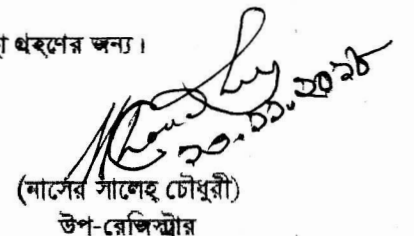 গ্রহণের জন্য।
২০.১১.২০১৮
(নাসের সালেহ চৌধুরী)
উপ-রেজিস্ট্রার